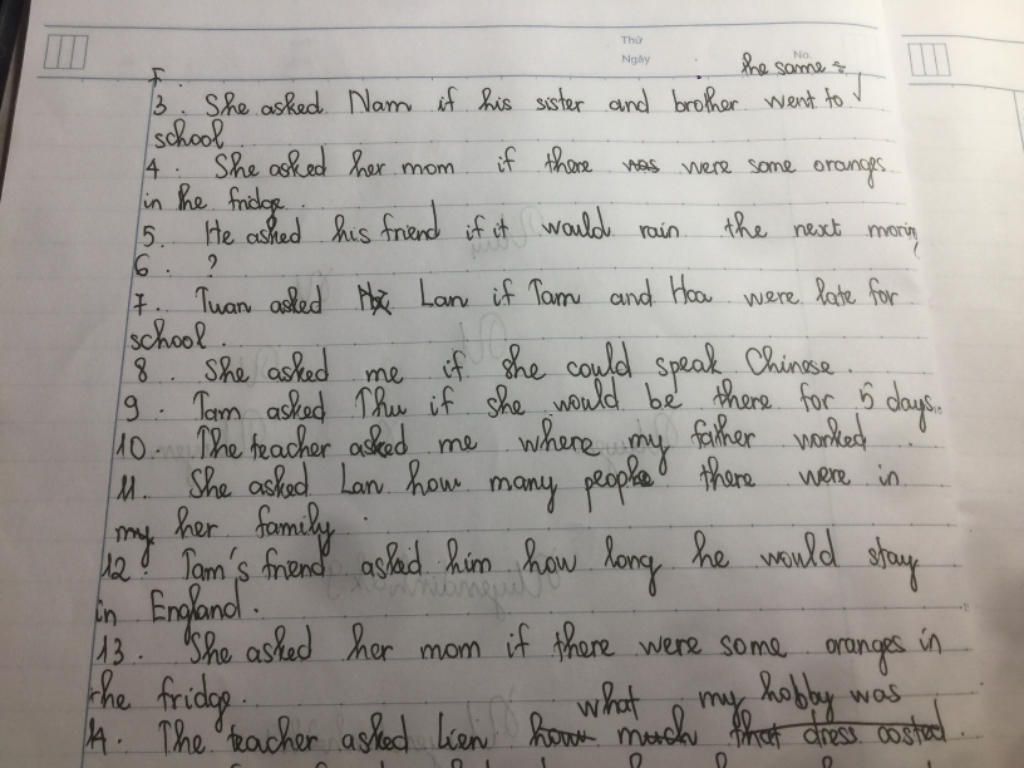 Thứ
Ngày
No.
the same
3. She asked Nam if his sister and brother went to √
school
4. She asked her mom if there was were some oranges
in the fridge.
5. He asked his friend if it would rain the next
6. ?
7. Tuan asked Lan if Tam and Hoa were late for
school.
8. She asked me if she could speak Chinese.
9. Tam asked Thu if she would be there for 5 days.
10. The teacher asked me where my father worked.
11. She asked Lan how many people there were in
my her family.
12. Tam's friend asked him how long he would stay
in England.
13. She asked her mom if there were some oranges in
the fridge.
what my hobby was
14. The teacher asked Lien how much that dress costed.